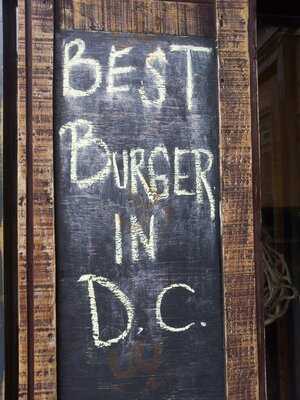 BEST
BURGER
IN
D.C.